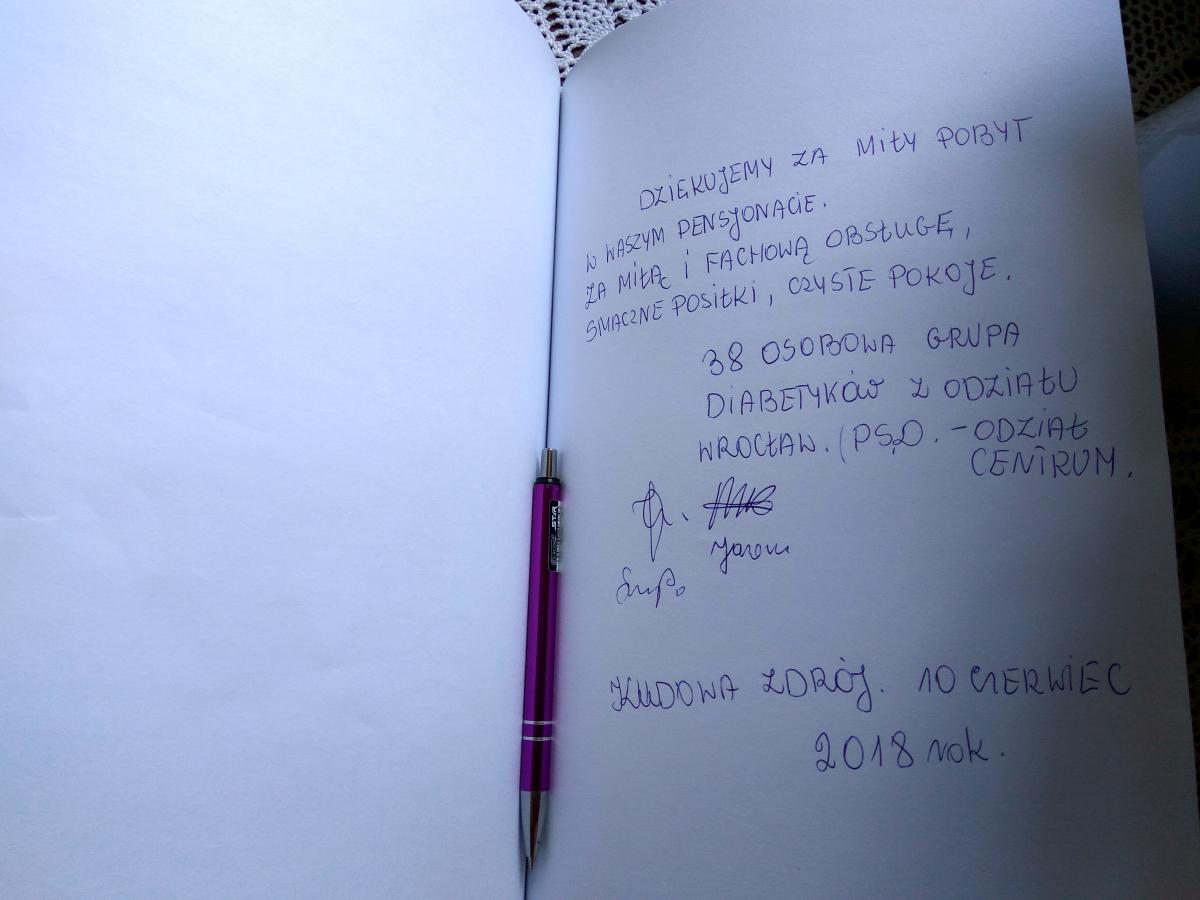 DZIĘKUJEMY ZA MIŁY POBYT
W WASZYM PENSJONACIE.
ZA MIŁĄ I FACHOWĄ OBSŁUGĘ,
SMACZNE POSIŁKI, CZYSTE POKOJE.
38 OSOBOWA GRUPA
DIABETYKÓW Z ODZIAŁU
WROCŁAW. (PSD. - ODZIAŁ
CENTRUM.
KUDOWA ZDRÓJ. 10 CZERWIEC
2018 rok.